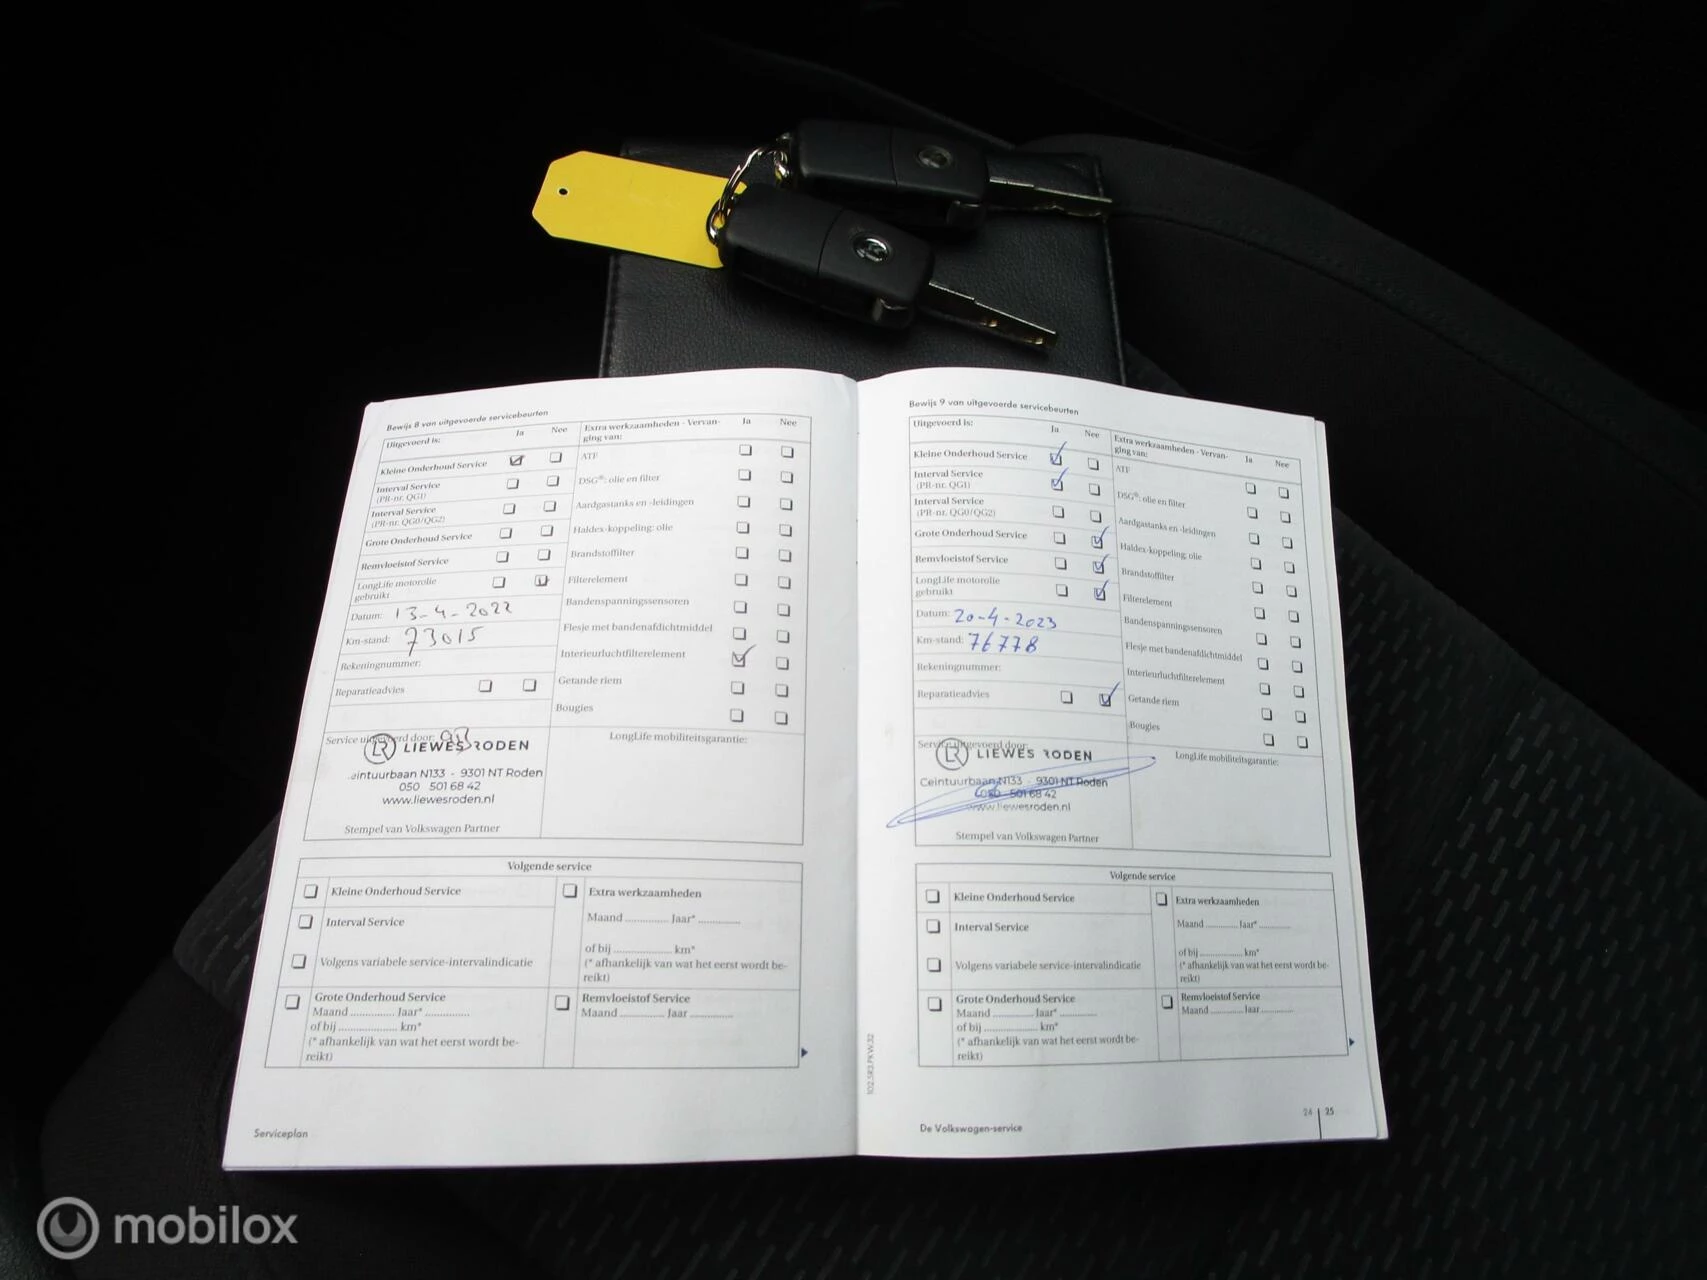 Bewijs 8 van uitgevoerde servicebeurten
Uitgevoerd is: Ja Nee
Kleine Onderhoud Service
Interval Service
(PR-nr. QG1)
Interval Service
(PR-nr. QG0/QG2)
Grote Onderhoud Service
Remvloeistof Service
LongLife motorolie
gebruikt
Datum: 13-4-2022
Km-stand: 73015
Rekeningnummer:
Reparatieadvies
Service uitgevoerd door:
LR LIEWES RODEN
Ceintuurbaan N133 - 9301 NT Roden
050 501 68 42
www.liewesroden.nl
Stempel van Volkswagen Partner
Extra werkzaamheden - Vervan-
ging van: Ja Nee
ATF
DSG®: olie en filter
Aardgastanks en -leidingen
Haldex-koppeling: olie
Brandstoffilter
Filterelement
Bandenspanningssensoren
Flesje met bandenafdichtmiddel
Interieurluchtfilterelement
Getande riem
Bougies
LongLife mobiliteitsgarantie:
Volgende service
Kleine Onderhoud Service
Interval Service
Volgens variabele service-intervalindicatie
Grote Onderhoud Service
Maand .............. Jaar* ..............
of bij .................. km*
(* afhankelijk van wat het eerst wordt be-
reikt)
Extra werkzaamheden
Maand .............. Jaar* ..............
of bij .................. km*
(* afhankelijk van wat het eerst wordt be-
reikt)
Remvloeistof Service
Maand .............. Jaar ..............
Serviceplan
Bewijs 9 van uitgevoerde servicebeurten
Uitgevoerd is: Ja Nee
Kleine Onderhoud Service
Interval Service
(PR-nr. QG1)
Interval Service
(PR-nr. QG0/QG2)
Grote Onderhoud Service
Remvloeistof Service
LongLife motorolie
gebruikt
Datum: 20-4-2023
Km-stand: 76778
Rekeningnummer:
Reparatieadvies
Service uitgevoerd door:
LR LIEWES RODEN
Ceintuurbaan N133 - 9301 NT Roden
050 501 68 42
www.liewesroden.nl
Stempel van Volkswagen Partner
Extra werkzaamheden - Vervan-
ging van: Ja Nee
ATF
DSG®: olie en filter
Aardgastanks en -leidingen
Haldex-koppeling: olie
Brandstoffilter
Filterelement
Bandenspanningssensoren
Flesje met bandenafdichtmiddel
Interieurluchtfilterelement
Getande riem
Bougies
LongLife mobiliteitsgarantie:
Volgende service
Kleine Onderhoud Service
Interval Service
Volgens variabele service-intervalindicatie
Grote Onderhoud Service
Maand .............. Jaar* ..............
of bij .................. km*
(* afhankelijk van wat het eerst wordt be-
reikt)
Extra werkzaamheden
Maand .............. Jaar* ..............
of bij .................. km*
(* afhankelijk van wat het eerst wordt be-
reikt)
Remvloeistof Service
Maand .............. Jaar ..............
102.5R3.PKW.32
De Volkswagen-service
24 | 25
mobilox